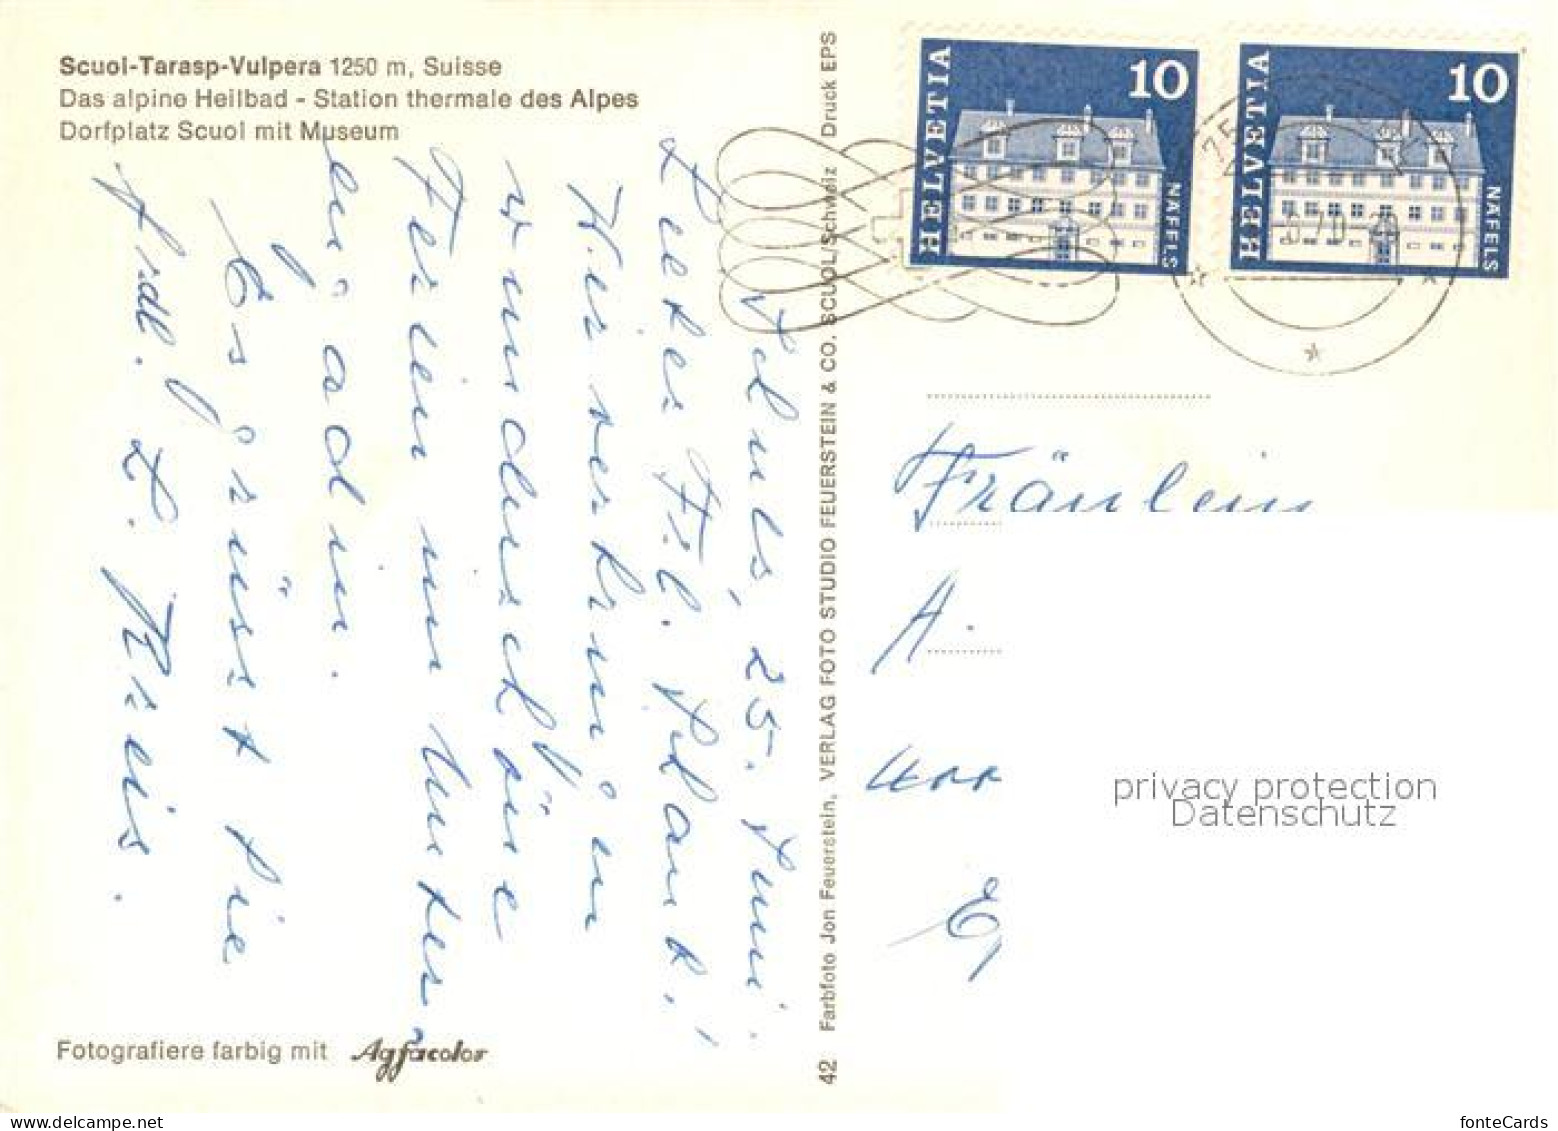 Scuol-Tarasp-Vulpera 1250 m, Suisse
Das alpine Heilbad - Station thermale des Alpes
Dorfplatz Scuol mit Museum
Schuls, 25. Juni.
Liebes Frl. Schank!
Hier verbringen
wunderschöne
Ferien im Unter-
engadin.
Es grüsst Sie
frdl. L. Kreis.
Fotografiere farbig mit Agfacolor
42 Farbfoto Jon Feuerstein, VERLAG FOTO STUDIO FEUERSTEIN & CO. SCUOL/Schweiz Druck EPS
HELVETIA 10 NÄFELS
HELVETIA 10 NÄFELS
Fräulein
A.
privacy protection
Datenschutz
fonteCards